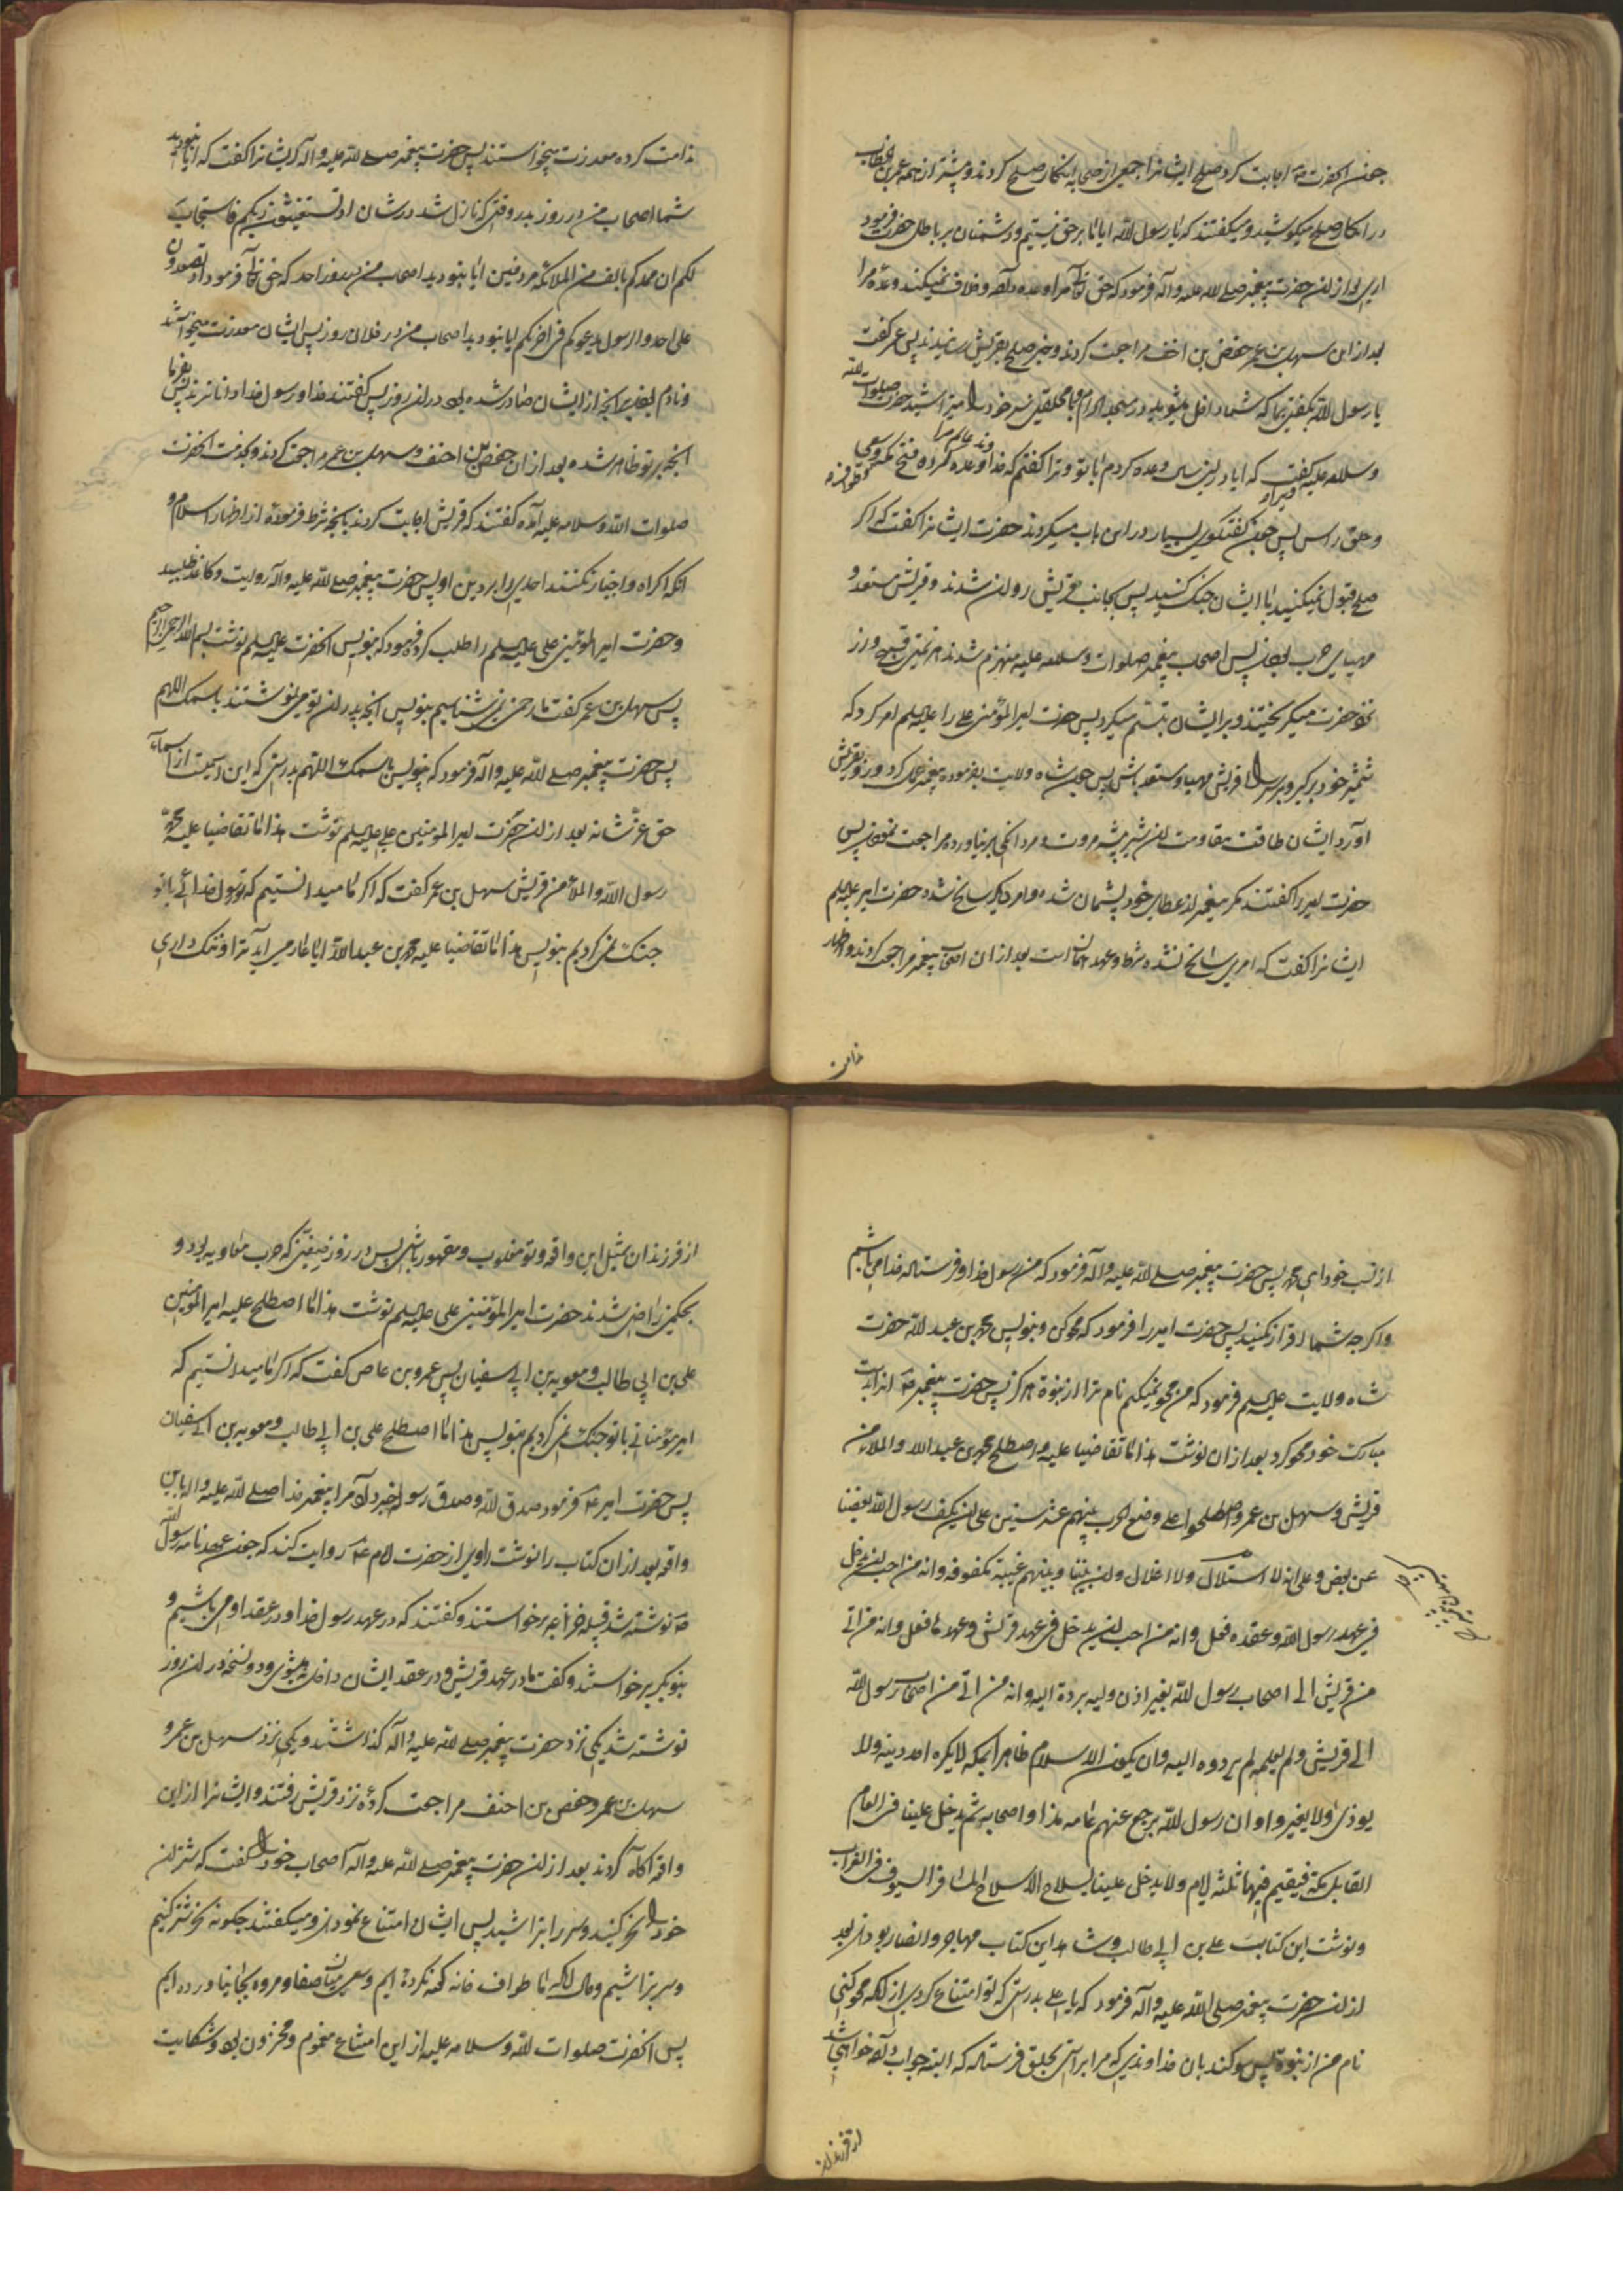 چون آنحضرت ص اجابت کرد صلح ایشانرا جمعی از صحابه انکار صلح کردند و پیشتر از همه عمر بن خطاب
در انکار صلح میکوشید و میکفتند که یا رسول الله ایا ما بر حق نیستیم و دشمنان بر باطل حضرت فرمود
اری بعد از ان حضرت پیغمبر صلی الله علیه و آله فرمود که حق تعالی مرا وعده داده و خلاف نمیکند وعده مرا
بعد از این سهیل بن عمر حفض بن احنف مراجعت کردند و خبر صلح بقریش رسانیدند پس عمر کفت
یا رسول الله نکفتی بما که شما داخل میشوید در مسجد الحرام با محلقین سر خود را میتراشید حضرت صلوات الله
و سلامه علیه کفت که ایا در این سال وعده کردم با تو و ترا کفتم که خداوند عالم مرا وعده کرده فتح مکه و سعی و طواف
و حلق راس پس چون کفتکوی بسیار در این باب میکردند حضرت ایشانرا کفت که اکر
صلح قبول نمیکنید با ایشان جنک کنید پس بجانب قریش روان شدند و قریش مستعد و
مهیای حرب بودند پس اصحاب پیغمبر صلوات و سلامه علیه منهزم شدند هزیمتی قبیح و از
نزد حضرت میکریختند و بر ایشان تبسم میکرد پس حضرت امیر المؤمنین علی را علیه السلم امر کرد که
شمشیر خود برکیر و بر سر راه قریش مهیا و مستعد باش پس چون شاه ولایت بفرموده پیغمبر عمل کرد و رو بقریش
آورد ایشان طاقت مقاومت ان شیر بیشه مروت و مردانکی برنیاورده مراجعت نمودند پس
حضرت امیر را کفتند مکر پیغمبر از عطای خود پشیمان شده و امر دیکر سانح شده حضرت امیر علیه السلم
ایشانرا کفت که امری سانح نشده شرط و عهد همان است بعد از ان اصحاب پیغمبر مراجعت کردند و اظهار
ندامت
ندامت کرده معذرت میخواستند پس حضرت پیغمبر صلی الله علیه و اله ایشانرا کفت که ایا نبودید
شما اصحاب من در روز بدر وقتی که نازل شد در شان اذ تستغیثون ربکم فاستجاب
لکم ان ممدکم بالف من الملائکه مردفین ایا نبودید اصحاب من در روز احد که حق تعالی فرمود اذ تصعدون
علی احد و الرسول یدعوکم فی اخریکم ایا نبودید اصحاب من در فلان روز پس ایشان معذرت میخواستند
و نادم بودند بر انچه از ایشان صادر شده بود در ان روز پس کفتند خدا و رسول خدا داناترند پس بفرما
انچه بر تو ظاهر شده بعد از ان حفض بن احنف و سهیل بن عمر مراجعت کردند و بخدمت انحضرت
صلوات الله و سلامه علیه آمده کفتند که قریش اجابت کردند بانچه شرط فرموده از اظهار اسلام و
انکه اکراه و اجبار نکنند احدی را بر دین او پس حضرت پیغمبر صلی الله علیه و اله دوایت و کاغذ طلبید
و حضرت امیر المؤمنین علی علیه السلم را طلب کرد فرمود که بنویس انحضرت علیه السلم نوشت بسم الله الرحمن الرحیم
پس سهیل بن عمر کفت ما رحمن نمی شناسیم بنویس انچه پدران تو می نوشتند باسمک اللهم
پس حضرت پیغمبر صلی الله علیه و اله فرمود که بنویس باسمک اللهم بدرستی که این اسمیست از اسماء
حق عز شانه بعد از ان حضرت امیر المؤمنین علی علیه السلم نوشت هذا ما تقاضیا علیه محمد
رسول الله و الملاء من قریش سهیل بن عمر کفت که اکر ما میدانستیم که تو رسول خدائی با تو
جنک نمی کردیم بنویس هذا ما تقاضیا علیه محمد بن عبد الله ایا عار می آید ترا و ننک داری
از نسب خود ای محمد پس حضرت پیغمبر صلی الله علیه و اله فرمود که من رسول خدا و فرستاده خدا می باشم
و اکرچه شما اقرار نکنید پس حضرت امیر را فرمود که محو کن و بنویس محمد بن عبد الله حضرت
شاه ولایت علیه السلم فرمود که من محو نمیکنم نام ترا از نبوة هرکز پس حضرت پیغمبر ص انرا بدست
مبارک خود محو کرد بعد از ان نوشت هذا ما تقاضیا علیه و اصطلح محمد بن عبد الله و الملاء من
قریش و سهیل بن عمر و اصطلحوا علی وضع الحرب بینهم عشر سنین علی ان یکف رسول الله بعضنا
عن بعض و علی انه لا استلال و لا اغلال و ان بیننا و بینهم غیبة مکفوفه و انه من احب ان یدخل
فی عهد رسول الله و عقده فعل و انه من احب ان یدخل فی عهد قریش و عهدها فعل و انه من اتی
من قریش الی اصحاب رسول الله بغیر اذن ولیه یردة الیه و انه من اتی من اصحاب رسول الله
الی قریش و لم یعلمه لم یردوه الیه و ان یکون الاسلام ظاهرا بمکه لا یکره احد دینه و لا
یوذی و لا یغیر و او ان رسول الله یرجع عنهم عامه هذا و اصحابه ثم یدخل علینا فی العام
القابل مکة فیقیم فیها ثلثه ایام و لا یدخل علینا بسلاح الا سلاح المسافر السیوف فی القراب
و نوشت این کتابت علی بن ابی طالب و شاهد این کتاب مهاجر و انصار بودند بعد
از ان حضرت پیغمبر صلی الله علیه و آله فرمود که یا علی بدرستی که تو امتناع کردی از انکه محو کنی
نام من از نبوة پس سوکند بان خداوندی که مرا براستی بخلق فرستاده که البته جواب داده خواهی شد
از فرزندان
از فرزندان بمثل این واقعه و تو مغلوب و مقهور باشی پس در روز صفین که حرب معاویه بود و
بحکمین راضی شدند حضرت امیر المؤمنین علی علیه السلم نوشت هذا ما اصطلح علیه امیر المؤمنین
علی بن ابی طالب و معویه بن ابی سفیان پس عمرو بن عاص کفت که اکر ما میدانستیم که
امیر مؤمنانی با تو جنک نمی کردیم بنویس هذا ما اصطلح علی بن ابی طالب و معویه بن ابی سفیان
پس حضرت امیر ع فرمود صدق الله و صدق رسوله خبر داد مرا پیغمبر خدا صلی الله علیه و اله باین
واقعه بعد از ان کتاب را نوشت راوی از حضرت امام ع روایت کند که چون عهدنامه رسول الله
ص نوشته شد قبیله خزاعه برخواستند و کفتند که در عهد رسول خدا و در عقد او می باشیم و
بنو بکر برخواستند و کفت ما در عهد قریش و در عقد ایشان داخل میشوی و دو نسخه در ان روز
نوشته شد یکی نزد حضرت پیغمبر صلی الله علیه و اله کذاشتند و یکی نزد سهیل بن عمرو
سهیل بن عمر و حفض بن احنف مراجعت کرده نزد قریش رفتند و ایشانرا از این
واقعه آکاه کردند بعد از ان حضرت پیغمبر صلی الله علیه و اله اصحاب خود را کفت که شتران
خود را نحر کنید و سر را بتراشید پس ایشان امتناع نمودند و میکفتند چکونه نحر شتر کنیم
و سر بتراشیم و حال انکه ما طواف خانه کعبه نکرده ایم و سعی میان صفا و مروه بجا نیاورده ایم
پس انحضرت صلوات الله و سلامه علیه از این امتناع مغموم و محزون بود و شکایت